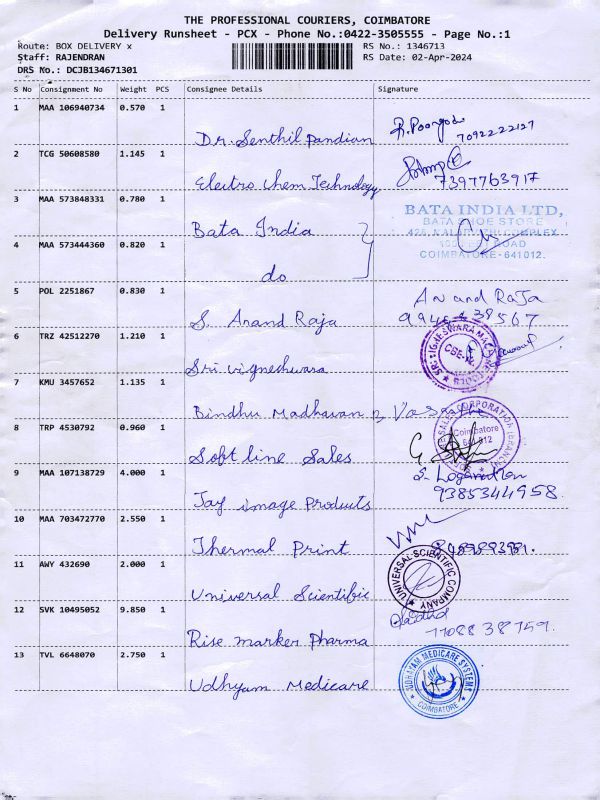 THE PROFESSIONAL COURIERS, COIMBATORE
Delivery Runsheet - PCX - Phone No.:0422-3505555 - Page No.:1
Route: BOX DELIVERY x RS No.: 1346713
Staff: RAJENDRAN RS Date: 02-Apr-2024
DRS No.: DCJB134671301
S No Consignment No Weight PCS Consignee Details Signature
1 MAA 106940734 0.570 1
Dr. Senthil Pandian R. Poongodi
7092222127
2 TCG 50608580 1.145 1
Electro Chem Technology 7397763917
3 MAA 573848331 0.780 1
Bata India BATA INDIA LTD,
BATA SHOE STORE
COMPLEX
ROAD
COIMBATORE-641012.
4 MAA 573444360 0.820 1
do
5 POL 2251867 0.830 1
S. Anand Raja Anand Raja
38567
6 TRZ 42512270 1.210 1
Sri vigneshwara
7 KMU 3457652 1.135 1
Bindhu Madhavan
8 TRP 4530792 0.960 1
Soft line Sales CORPORATION
Coimbatore
641 012
9 MAA 107138729 4.000 1
Jay image Products S. Loganathan
9385344958.
10 MAA 703472770 2.550 1
Thermal Print
11 AWY 432690 2.000 1
Universal Scientific UNIVERSAL SCIENTIFIC COMPANY
12 SVK 10495052 9.850 1
Rise marker Pharma 38759.
13 TVL 6648070 2.750 1
Udhyam Medicare UDHAYAM MEDICARE SYSTEMS
COIMBATORE